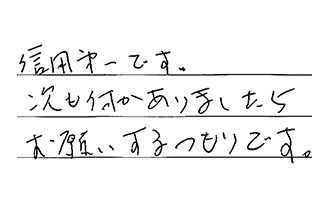 信用第一です。
次も何かありましたら
お願いするつもりです。